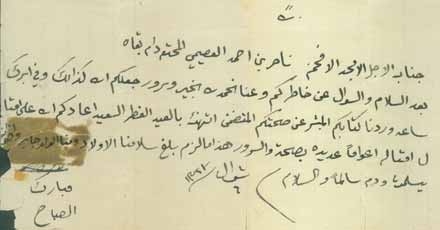 جناب الاجل الامجد الافخم ناصر بن احمد العصيمي المحترم دام بقاه
بعد السلام والسؤال عن خاطركم وعنا انحمد الله بخير وسرور جعلكم الله كذالك وفي ابرك
ساعه وردنا كتابكم المبشر عن صحتكم المتضمن التهنئه بالعيد الفطر السعيد اعادكم الله على امثا
ل امثاله اعواما عديده بصحة والسرور هذا مالزم بلغ سلامنا الاولاد ومنا الاولاد جابر
يسلمون ودم سالما والسلام
شوال
مبارك
الصباح